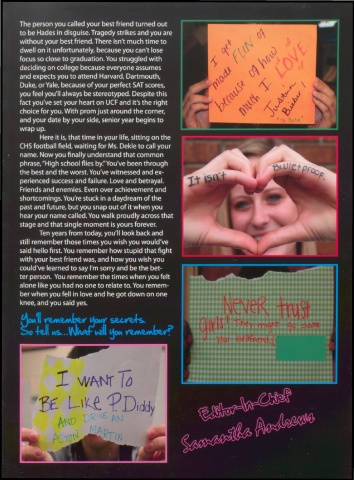 The person you called your best friend turned out
to be Hades in disguise. Tragedy strikes and you are
without your best friend. There isn't much time to
dwell on it unfortunately, because you can't lose
focus so close to graduation. You struggled with
deciding on college because everyone assumes
and expects you to attend Harvard, Dartmouth,
Duke, or Yale, because of your perfect SAT scores,
you feel you'll always be stereotyped. Despite this
fact you've set your heart on UCF and it's the right
choice for you. With prom just around the corner,
and your date by your side, senior year begins to
wrap up.
Here it is, that time in your life, sitting on the
CHS football field, waiting on Ms. Dekle to call your
name. Now you finally understand that common
phrase, "High school flies by." You've been through
the best and the worst. You've witnessed and ex-
perienced success and failure. Love and betrayal.
Friends and enemies. Even over achievement and
shortcomings. You're stuck in a daydream of the
past and future, but you snap out of it when you
hear your name called. You walk proudly across that
stage and that single moment is yours forever.
Ten years from today, you'll look back and
still remember those times you wish you would've
said hello first. You remember how stupid that fight
with your best friend was, and how you wish you
could've learned to say I'm sorry and be the bet-
ter person. You remember the times when you felt
alone like you had no one to relate to. You remem-
ber when you fell in love and he got down on one
knee, and you said yes.
You'll remember your secrets.
So tell us...What will you remember?
I WANT TO
BE LIKE P. Diddy
AND DRIVE AN
ASTON MARTIN
I get
made FUN of
because of how
much I LOVE
Justin
Bieber
It isn't
Bulletproof
NEVER trust
girls!
Editor-In-Chief
Samantha Andrews